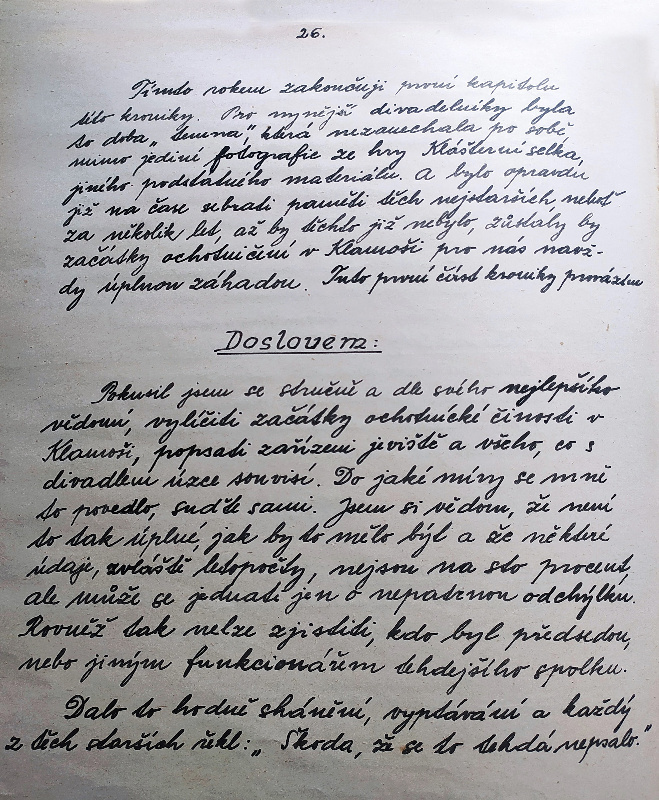 26.
Tímto rokem zakončuji první kapitolu
této kroniky. Pro nynější divadelníky byla
to doba „temna", která nezanechala po sobě
mimo jediné fotografie ze hry Klášterní selka,
jiného podstatného materiálu. A bylo opravdu
již na čase sebrati paměti těch nejstarších neboť
za několik let, až by těchto již nebylo, zůstaly by
začátky ochotničení v Klamoši pro nás navž-
dy úplnou záhadou. Tuto první část kroniky provázím
Doslovem:
Pokusil jsem se stručně a dle svého nejlepšího
vědomí, vylíčiti začátky ochotnické činosti v
Klamoši, popsati zařízení jeviště a všeho, co s
divadlem úzce souvisí. Do jaké míry se mně
to povedlo, suďte sami. Jsem si vědom, že není
to tak úplné, jak by to mělo být a že některé
údaje, zvláště letopočty, nejsou na sto procent,
ale může se jednati jen o nepatrnou odchylku.
Rovněž tak nelze zjistiti, kdo byl předsedou,
nebo jiným funkcionářem tehdejšího spolku.
Dalo to hodně shánění, vyptávání a každý
z těch starších řekl: „Škoda, že se to tehdá nepsalo."